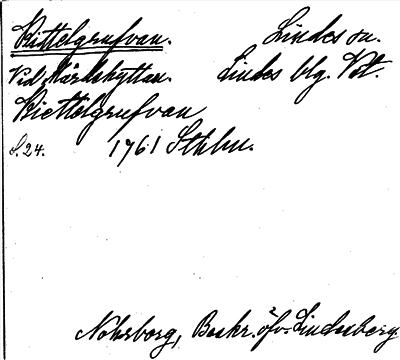 Kittelgrufvan. Lindes sn.
Vid Mårdshyttan. Lindes blg. Vstm.
Kiettelgrufvan
S. 24. 1761 Sthlm.
Nohrborg, Beskr. öfv. Lindesberg.